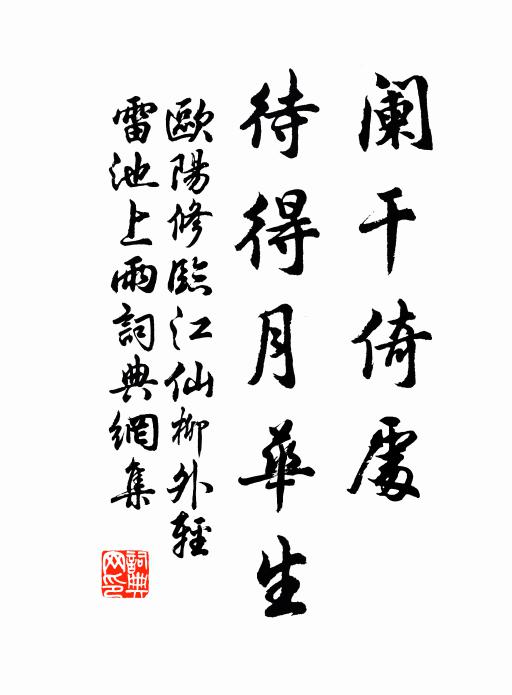 阑干倚處
待得月華生
歐陽修臨江仙柳外輕
雷池上雨詞典網集
詞典
网印